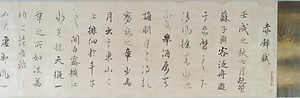 赤壁賦
壬戌之秋七月既望
蘇子與客泛舟遊
于赤壁之下清
風徐來水波不
興舉酒屬客
誦明月之詩歌
窈窕之章少焉
月出于東山之
上徘徊于斗牛
之間白露橫江
水光接天縱一
葦之所如凌萬
頃之茫然浩
虛御風